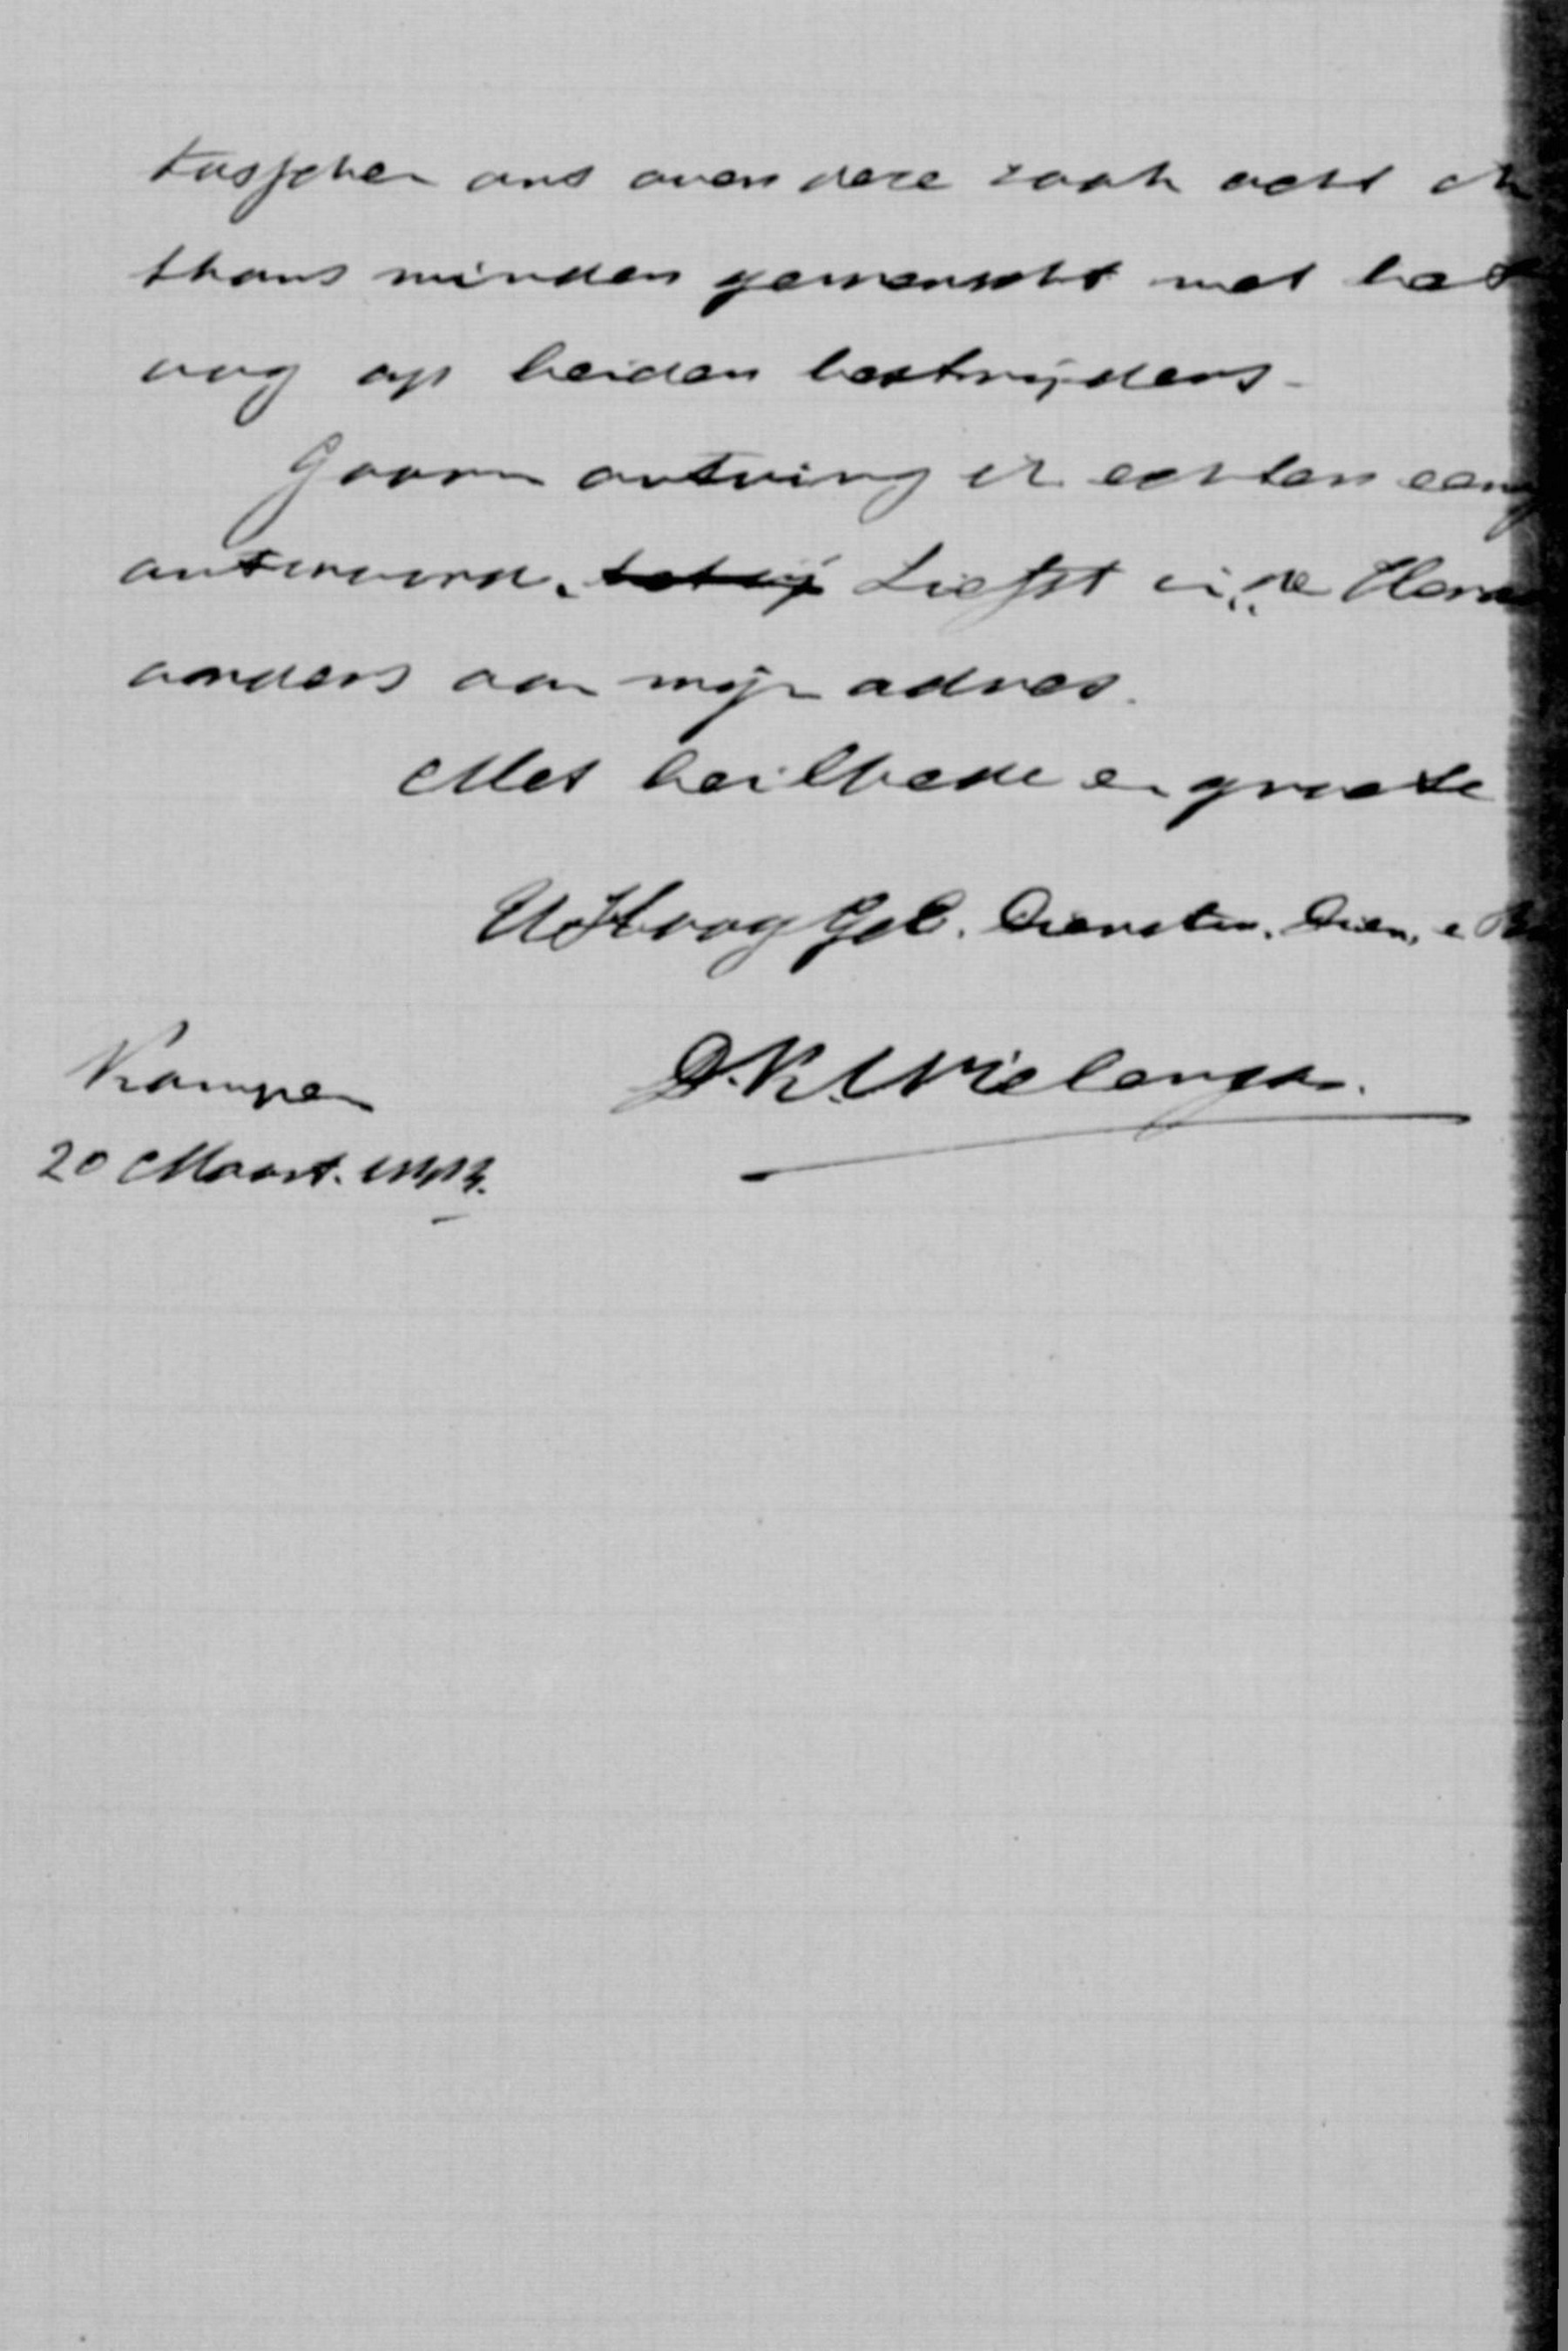 tusschen ons over deze zaak acht ik
thans minder gewenscht met het
oog op beider bestrijders.
Gaarne ontving ik echter eenig
antwoord. Liefst in "de Heraut"
anders aan mijn adres.
Met heilbede en groete
UHoogGel. Dienstw. Dien. e Br
D.K. Wielenga.
Kampen
20 Maart.